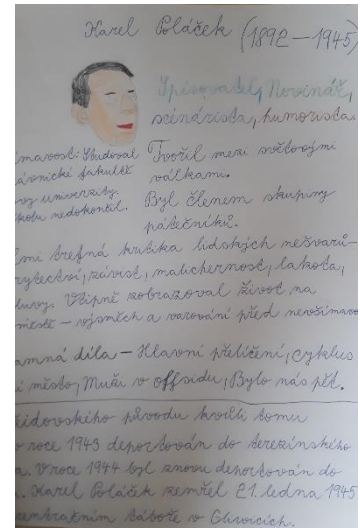 Karel Poláček (1892–1945)
Spisovatel, Novinář,
scénárista, humorista.
ímavost: Studoval
ávnické fakultě
vy univerzity.
kolu nedokončil.
Tvořil mezi světovými
válkami.
Byl členem skupiny
pátečníků.
lmi trefná kritika lidských nešvarů–
rytectví, závist, malichernost, lakota,
luvy. Vtipně zobrazoval život na
městě – výsměch a varování před nevšímavo
amná díla – Hlavní přelíčení, cyklus
í město, Muži v offsidu, Bylo nás pět.
židovského původu kvůli tomu
v roce 1943 deportován do terezínského
a. V roce 1944 byl znovu deportován do
. Karel Poláček zemřel 21. ledna 1945
ncentračním táboře v Gliwicích